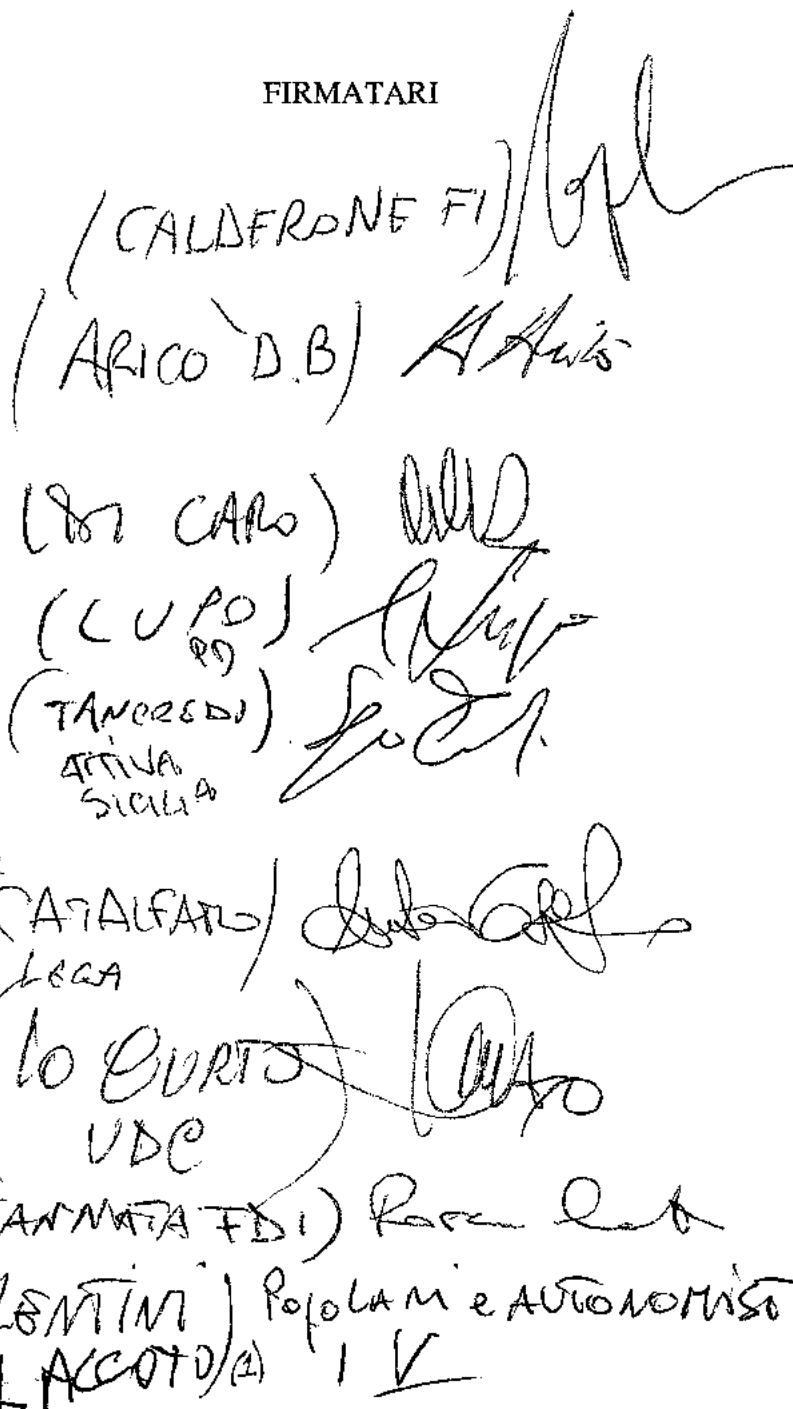 FIRMATARI
(CALDERONE FI)
(ARICO' D.B)
(DI CARO)
(LUPO)
PD
(TANCREDI)
ATTIVA
SICILIA
CATALFAMO)
LEGA
LO CURTO)
UDC
ANNATA FDI)
LENTINI) POPOLARI e AUTONOMISTI
ACCOTO)(1) I V